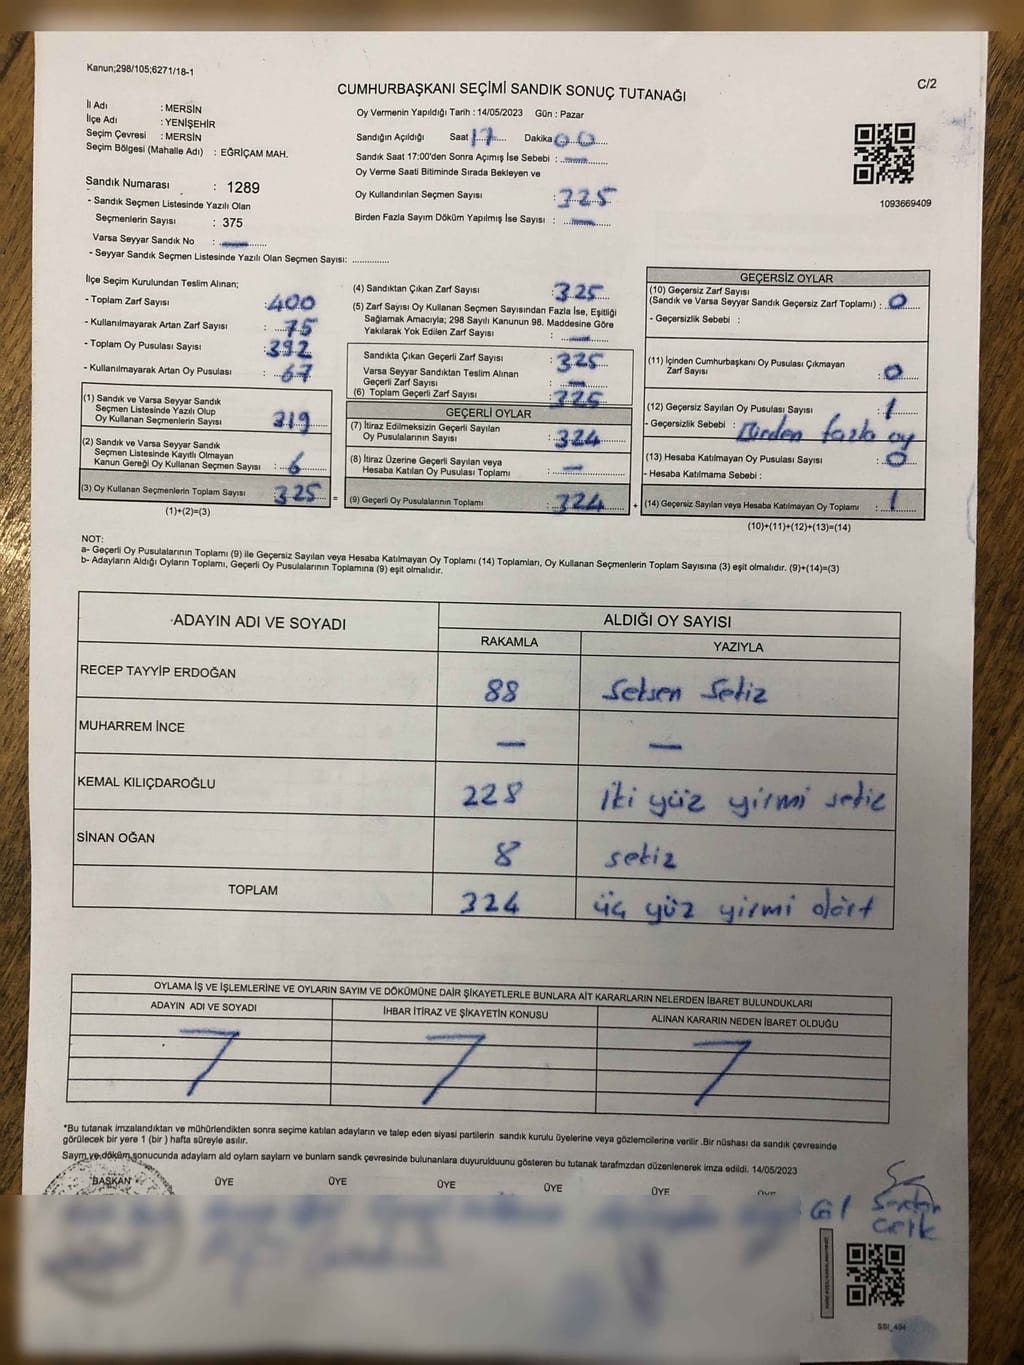 Kanun;298/105;6271/18-1
C/2
CUMHURBAŞKANI SEÇİMİ SANDIK SONUÇ TUTANAĞI
İl Adı : MERSİN
İlçe Adı : YENİŞEHİR
Seçim Çevresi : MERSİN
Seçim Bölgesi (Mahalle Adı) : EĞRİÇAM MAH.
Sandık Numarası : 1289
- Sandık Seçmen Listesinde Yazılı Olan
Seçmenlerin Sayısı : 375
Varsa Seyyar Sandık No : —
- Seyyar Sandık Seçmen Listesinde Yazılı Olan Seçmen Sayısı: ..............
Oy Vermenin Yapıldığı Tarih : 14/05/2023 Gün : Pazar
Sandığın Açıldığı Saat 17 Dakika 00
Sandık Saat 17:00'den Sonra Açımış İse Sebebi : —
Oy Verme Saati Bitiminde Sırada Bekleyen ve
Oy Kullandırılan Seçmen Sayısı : 325
Birden Fazla Sayım Döküm Yapılmış İse Sayısı : —
1093669409
İlçe Seçim Kurulundan Teslim Alınan;
- Toplam Zarf Sayısı : 400
- Kullanılmayarak Artan Zarf Sayısı : 75
- Toplam Oy Pusulası Sayısı : 392
- Kullanılmayarak Artan Oy Pusulası : 67
(1) Sandık ve Varsa Seyyar Sandık
Seçmen Listesinde Yazılı Olup
Oy Kullanan Seçmenlerin Sayısı : 319
(2) Sandık ve Varsa Seyyar Sandık
Seçmen Listesinde Kayıtlı Olmayan
Kanun Gereği Oy Kullanan Seçmen Sayısı : 6
(3) Oy Kullanan Seçmenlerin Toplam Sayısı : 325 =
(1)+(2)=(3)
(4) Sandıktan Çıkan Zarf Sayısı : 325
(5) Zarf Sayısı Oy Kullanan Seçmen Sayısından Fazla İse, Eşitliği
Sağlamak Amacıyla; 298 Sayılı Kanunun 98. Maddesine Göre
Yakılarak Yok Edilen Zarf Sayısı : —
Sandıkta Çıkan Geçerli Zarf Sayısı : 325
Varsa Seyyar Sandıktan Teslim Alınan
Geçerli Zarf Sayısı : —
(6) Toplam Geçerli Zarf Sayısı : 325
GEÇERLİ OYLAR
(7) İtiraz Edilmeksizin Geçerli Sayılan
Oy Pusulalarının Sayısı : 324
(8) İtiraz Üzerine Geçerli Sayılan veya
Hesaba Katılan Oy Pusulası Toplamı : —
(9) Geçerli Oy Pusulalarının Toplamı : 324 +
GEÇERSİZ OYLAR
(10) Geçersiz Zarf Sayısı
(Sandık ve Varsa Seyyar Sandık Geçersiz Zarf Toplamı) : 0
- Geçersizlik Sebebi :
(11) İçinden Cumhurbaşkanı Oy Pusulası Çıkmayan
Zarf Sayısı : 0
(12) Geçersiz Sayılan Oy Pusulası Sayısı : 1
- Geçersizlik Sebebi : Birden fazla oy
(13) Hesaba Katılmayan Oy Pusulası Sayısı : 0
- Hesaba Katılmama Sebebi :
(14) Geçersiz Sayılan veya Hesaba Katılmayan Oy Toplamı : 1
(10)+(11)+(12)+(13)=(14)
NOT:
a- Geçerli Oy Pusulalarının Toplamı (9) ile Geçersiz Sayılan veya Hesaba Katılmayan Oy Toplamı (14) Toplamları, Oy Kullanan Seçmenlerin Toplam Sayısına (3) eşit olmalıdır. (9)+(14)=(3)
b- Adayların Aldığı Oyların Toplamı, Geçerli Oy Pusulalarının Toplamına (9) eşit olmalıdır.
ADAYIN ADI VE SOYADI
ALDIĞI OY SAYISI
RAKAMLA YAZIYLA
RECEP TAYYİP ERDOĞAN 88 Seksen Sekiz
MUHARREM İNCE — —
KEMAL KILIÇDAROĞLU 228 iki yüz yirmi sekiz
SİNAN OĞAN 8 sekiz
TOPLAM 324 üç yüz yirmi dört
OYLAMA İŞ VE İŞLEMLERİNE VE OYLARIN SAYIM VE DÖKÜMÜNE DAİR ŞİKAYETLERLE BUNLARA AİT KARARLARIN NELERDEN İBARET BULUNDUKLARI
ADAYIN ADI VE SOYADI İHBAR İTİRAZ VE ŞİKAYETİN KONUSU ALINAN KARARIN NEDEN İBARET OLDUĞU
*Bu tutanak imzalandıktan ve mühürlendikten sonra seçime katılan adayların ve talep eden siyasi partilerin sandık kurulu üyelerine veya gözlemcilerine verilir .Bir nüshası da sandık çevresinde
görülecek bir yere 1 (bir ) hafta süreyle asılır.
Sayım ve döküm sonucunda adayların ald oyların sayların ve bunların sandk çevresinde bulunanlara duyurulduunu gösteren bu tutanak tarafmzdan düzenlenerek imza edildi. 14/05/2023
BAŞKAN ÜYE ÜYE ÜYE ÜYE ÜYE ÜYE
SSI_404